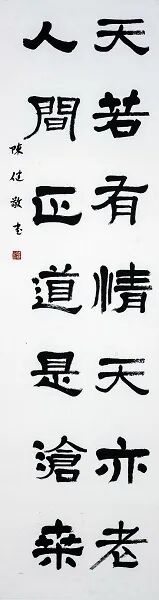 天若有情天亦老
人間正道是滄桑
陳健敬书